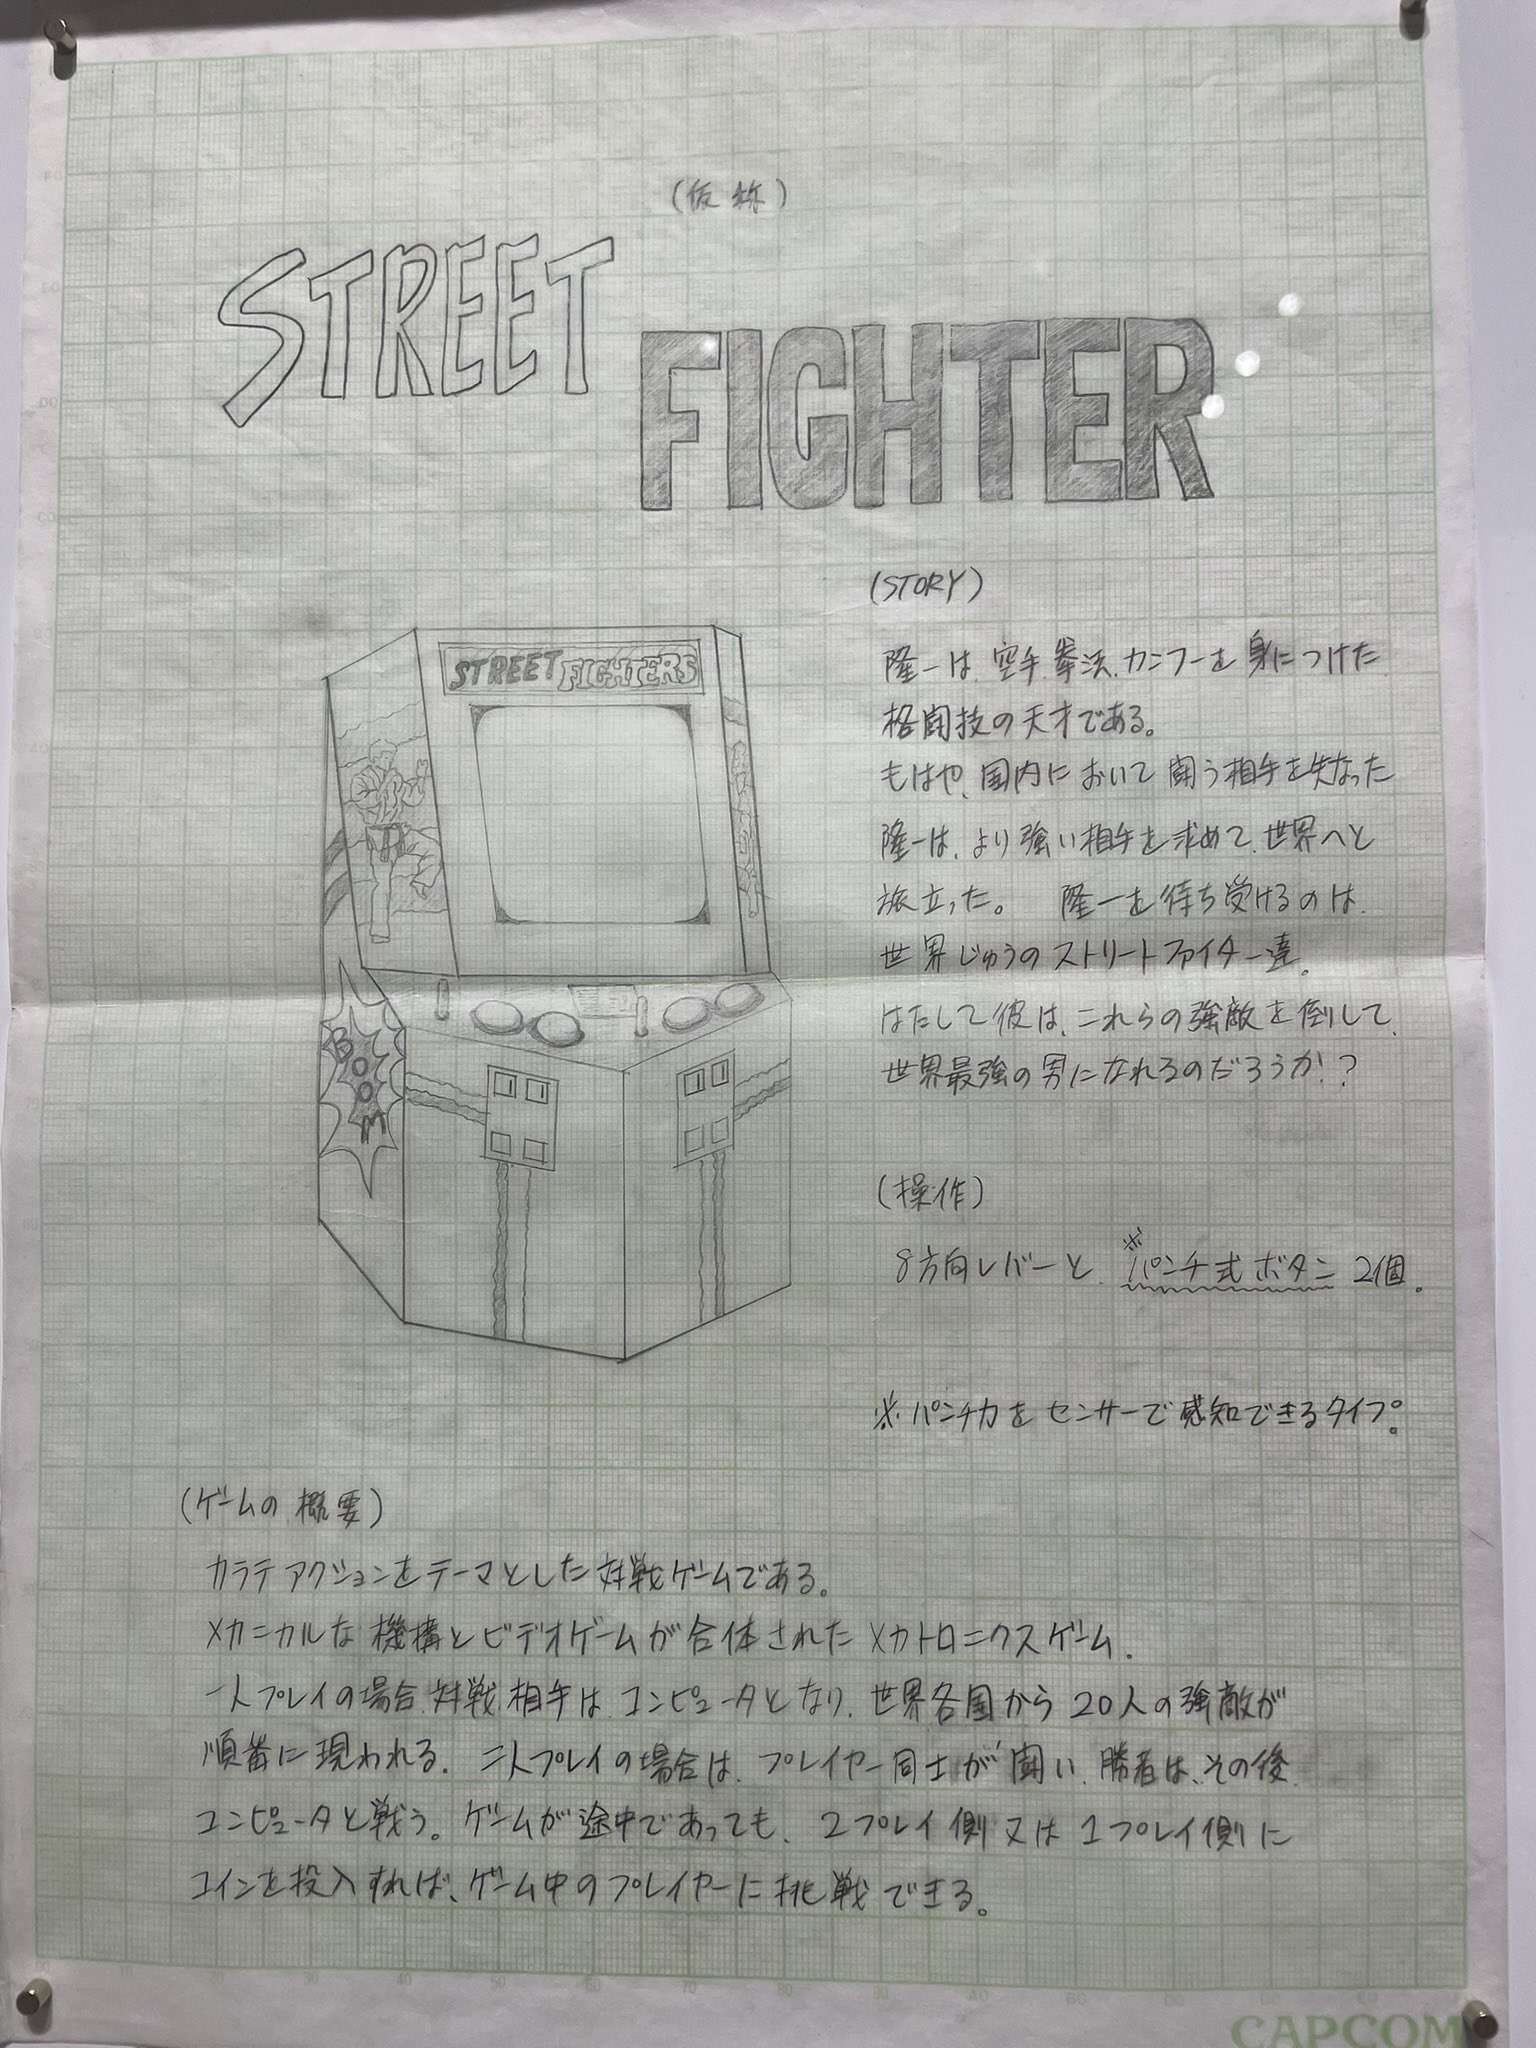 (仮称)
STREET
FIGHTER
(STORY)
隆一は、空手、拳法、カンフーを身につけた
格闘技の天才である。
もはや、国内において闘う相手を失なった
隆一は、より強い相手を求めて、世界へと
旅立った。 隆一を待ち受けるのは、
世界じゅうのストリートファイター達。
はたして彼は、これらの強敵を倒して、
世界最強の男になれるのだろうか!?
STREET FIGHTERS
BOOM
(操作)
8方向レバーと、※パンチ式ボタン 2個。
※パンチ力をセンサーで感知できるタイプ。
(ゲームの概要)
カラテアクションをテーマとした対戦ゲームである。
メカニカルな機構とビデオゲームが合体されたメカトロニクスゲーム。
一人プレイの場合、対戦相手は、コンピュータとなり、世界各国から20人の強敵が
順番に現われる。二人プレイの場合は、プレイヤー同士が闘い、勝者は、その後、
コンピュータと戦う。ゲームが途中であっても、2プレイ側又は1プレイ側に
コインを投入すれば、ゲーム中のプレイヤーに挑戦できる。
CAPCOM